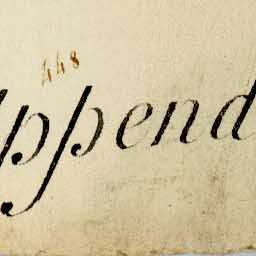 448
Append